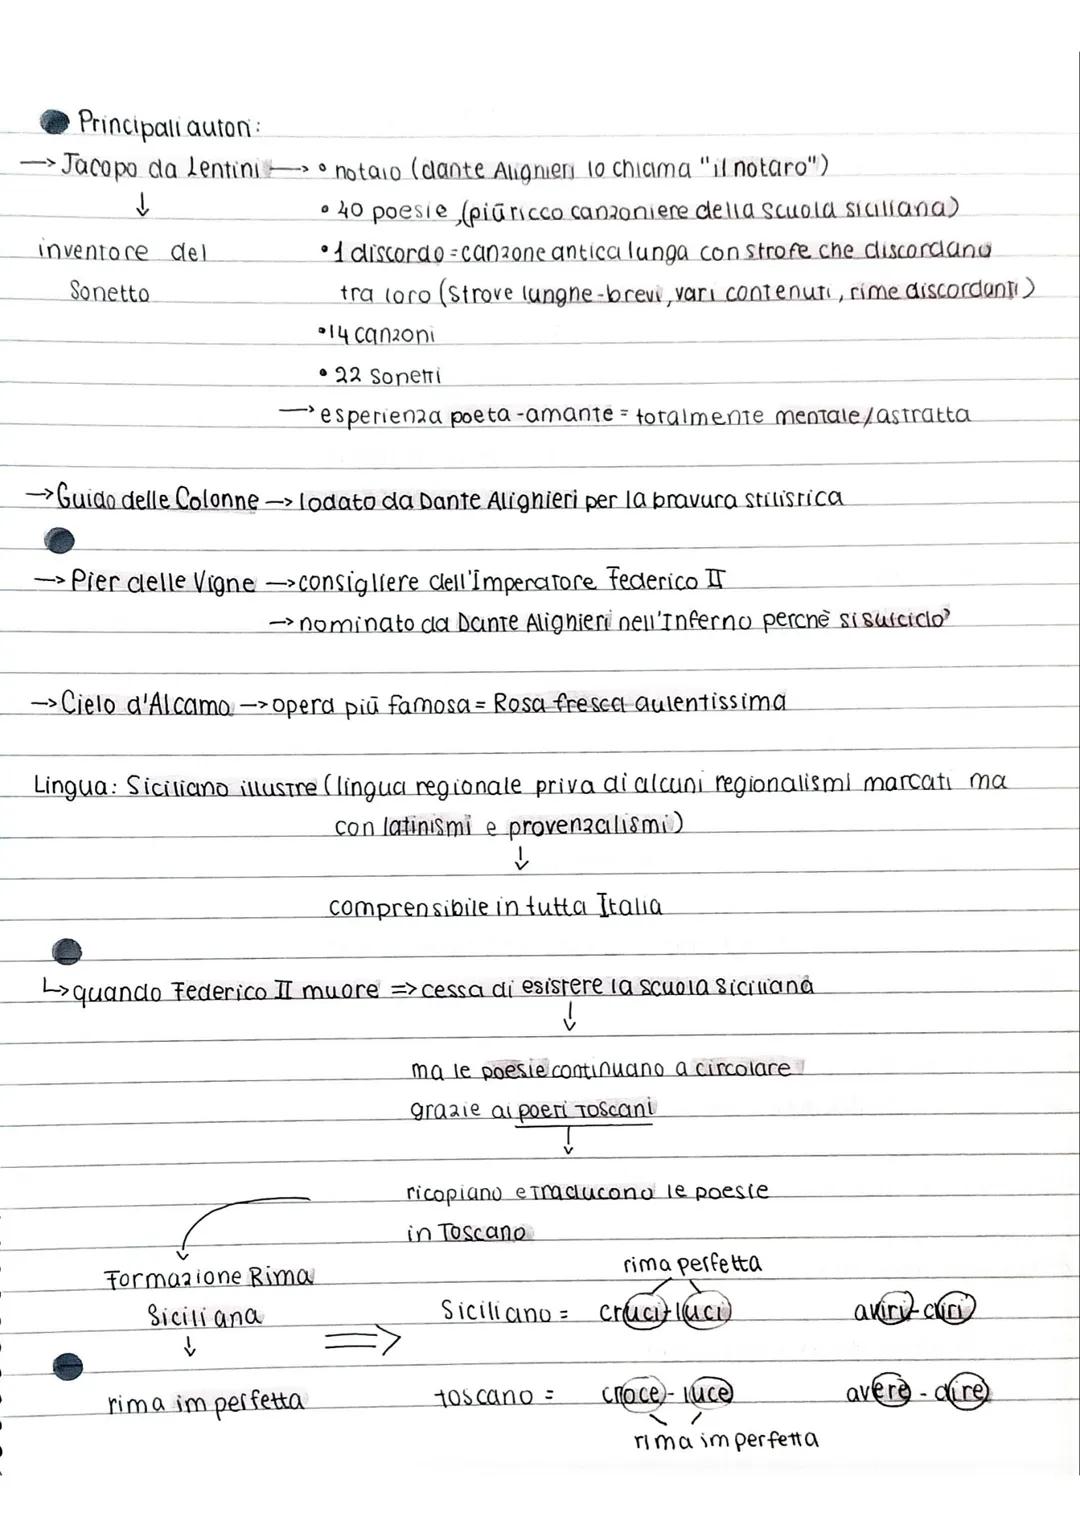 Principali autori:
→ Jacopo da Lentini → ° notaio (dante Alighieri lo chiama "il notaro")
↓
• 40 poesie (più ricco canzoniere della scuola siciliana)
inventore del
• 1 discordo = canzone antica lunga con strofe che discordano
Sonetto
tra loro (strove lunghe-brevi, vari contenuti, rime discordanti)
• 14 canzoni
• 22 Sonetti
→ esperienza poeta-amante = totalmente mentale/astratta
→ Guido delle Colonne → lodato da Dante Alighieri per la bravura stilistica
→ Pier delle Vigne → consigliere dell'Imperatore Federico II
→ nominato da Dante Alighieri nell'Inferno perchè si suicidò
→ Cielo d'Alcamo → opera più famosa = Rosa fresca aulentissima
Lingua: Siciliano illustre (lingua regionale priva di alcuni regionalismi marcati ma
con latinismi e provenzalismi)
↓
comprensibile in tutta Italia
↳ quando Federico II muore => cessa di esistere la scuola siciliana
↓
ma le poesie continuano a circolare
grazie ai poeti Toscani
↓
ricopiano e traducono le poesie
in Toscano
rima perfetta
Formazione Rima
Siciliana
Siciliano = cruci-luci aviri-diri
↓
⇒
rima imperfetta
toscano = croce-luce avere-dire
rima imperfetta